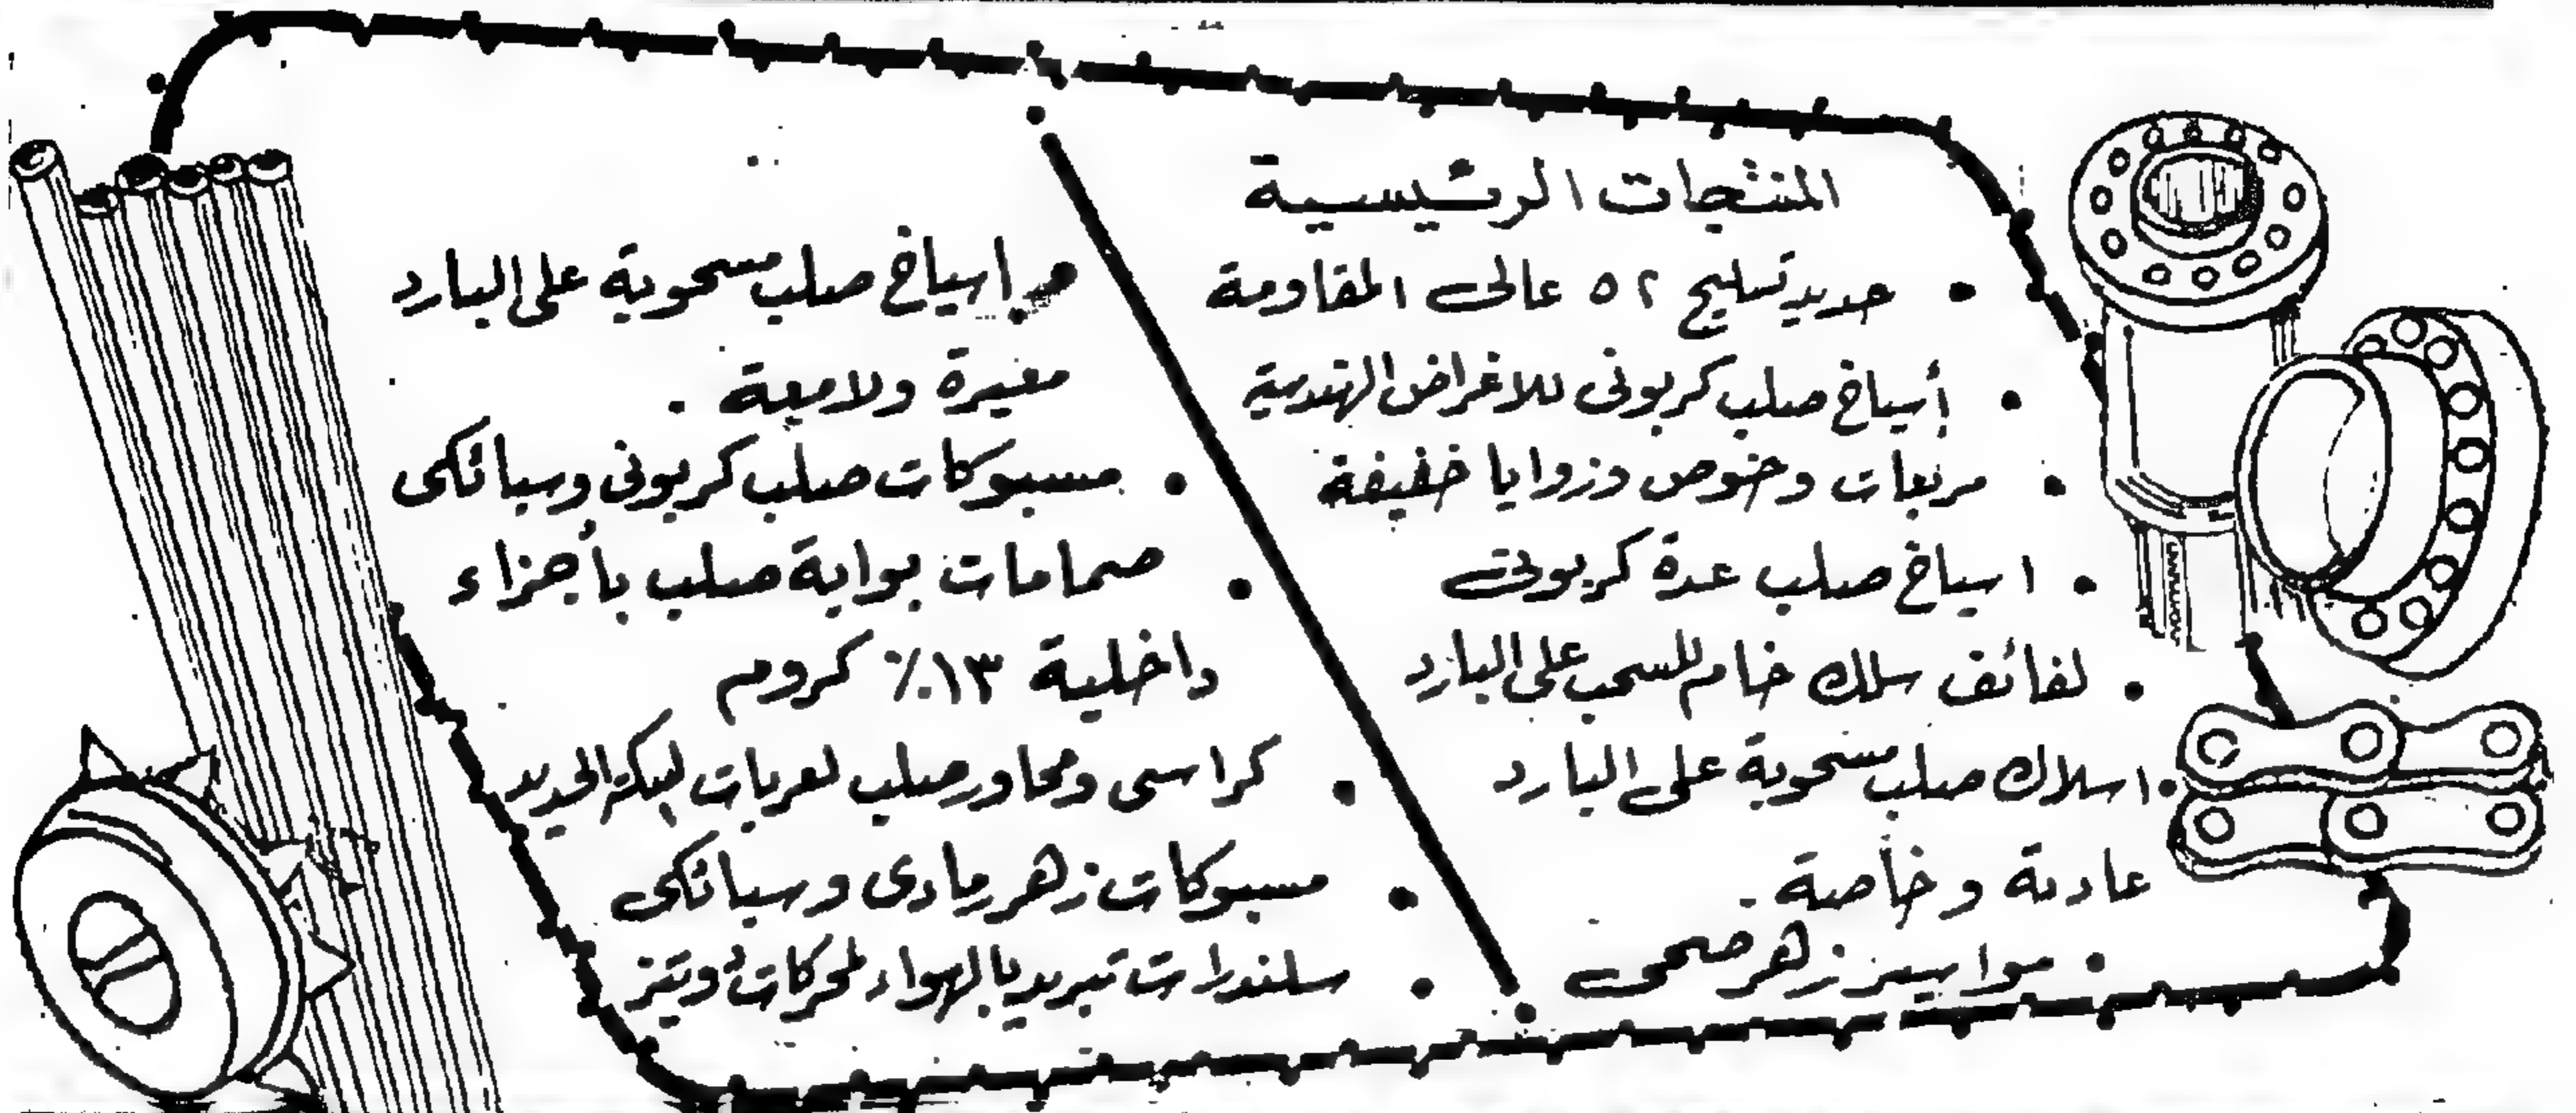 المنتجات الرئيسية
• حديد تسليح ٥٢ عالى المقاومة
• أسياخ صلب كربونى للاغراض الهندسية
• مربعات وخوص وزوايا خفيفة
• اسياخ صلب عدة كربونى
• لفائف سلك خام للسحب على البارد
• اسلاك صلب مسحوبة على البارد
عادية وخاصة .
• مواسير زهر صحى
• اسياخ صلب مسحوبة على البارد
مغيرة ولامعة .
• مسبوكات صلب كربونى وسبائكى
• صمامات بوابة صلب بأجزاء
داخلية ١٣٪ كروم
• كراسى ومحاور صلب لعربات السكة الحديد
• مسبوكات زهر رمادى وسبائكى
• سلندرات تبريد بالهواء لمحركات دويتز